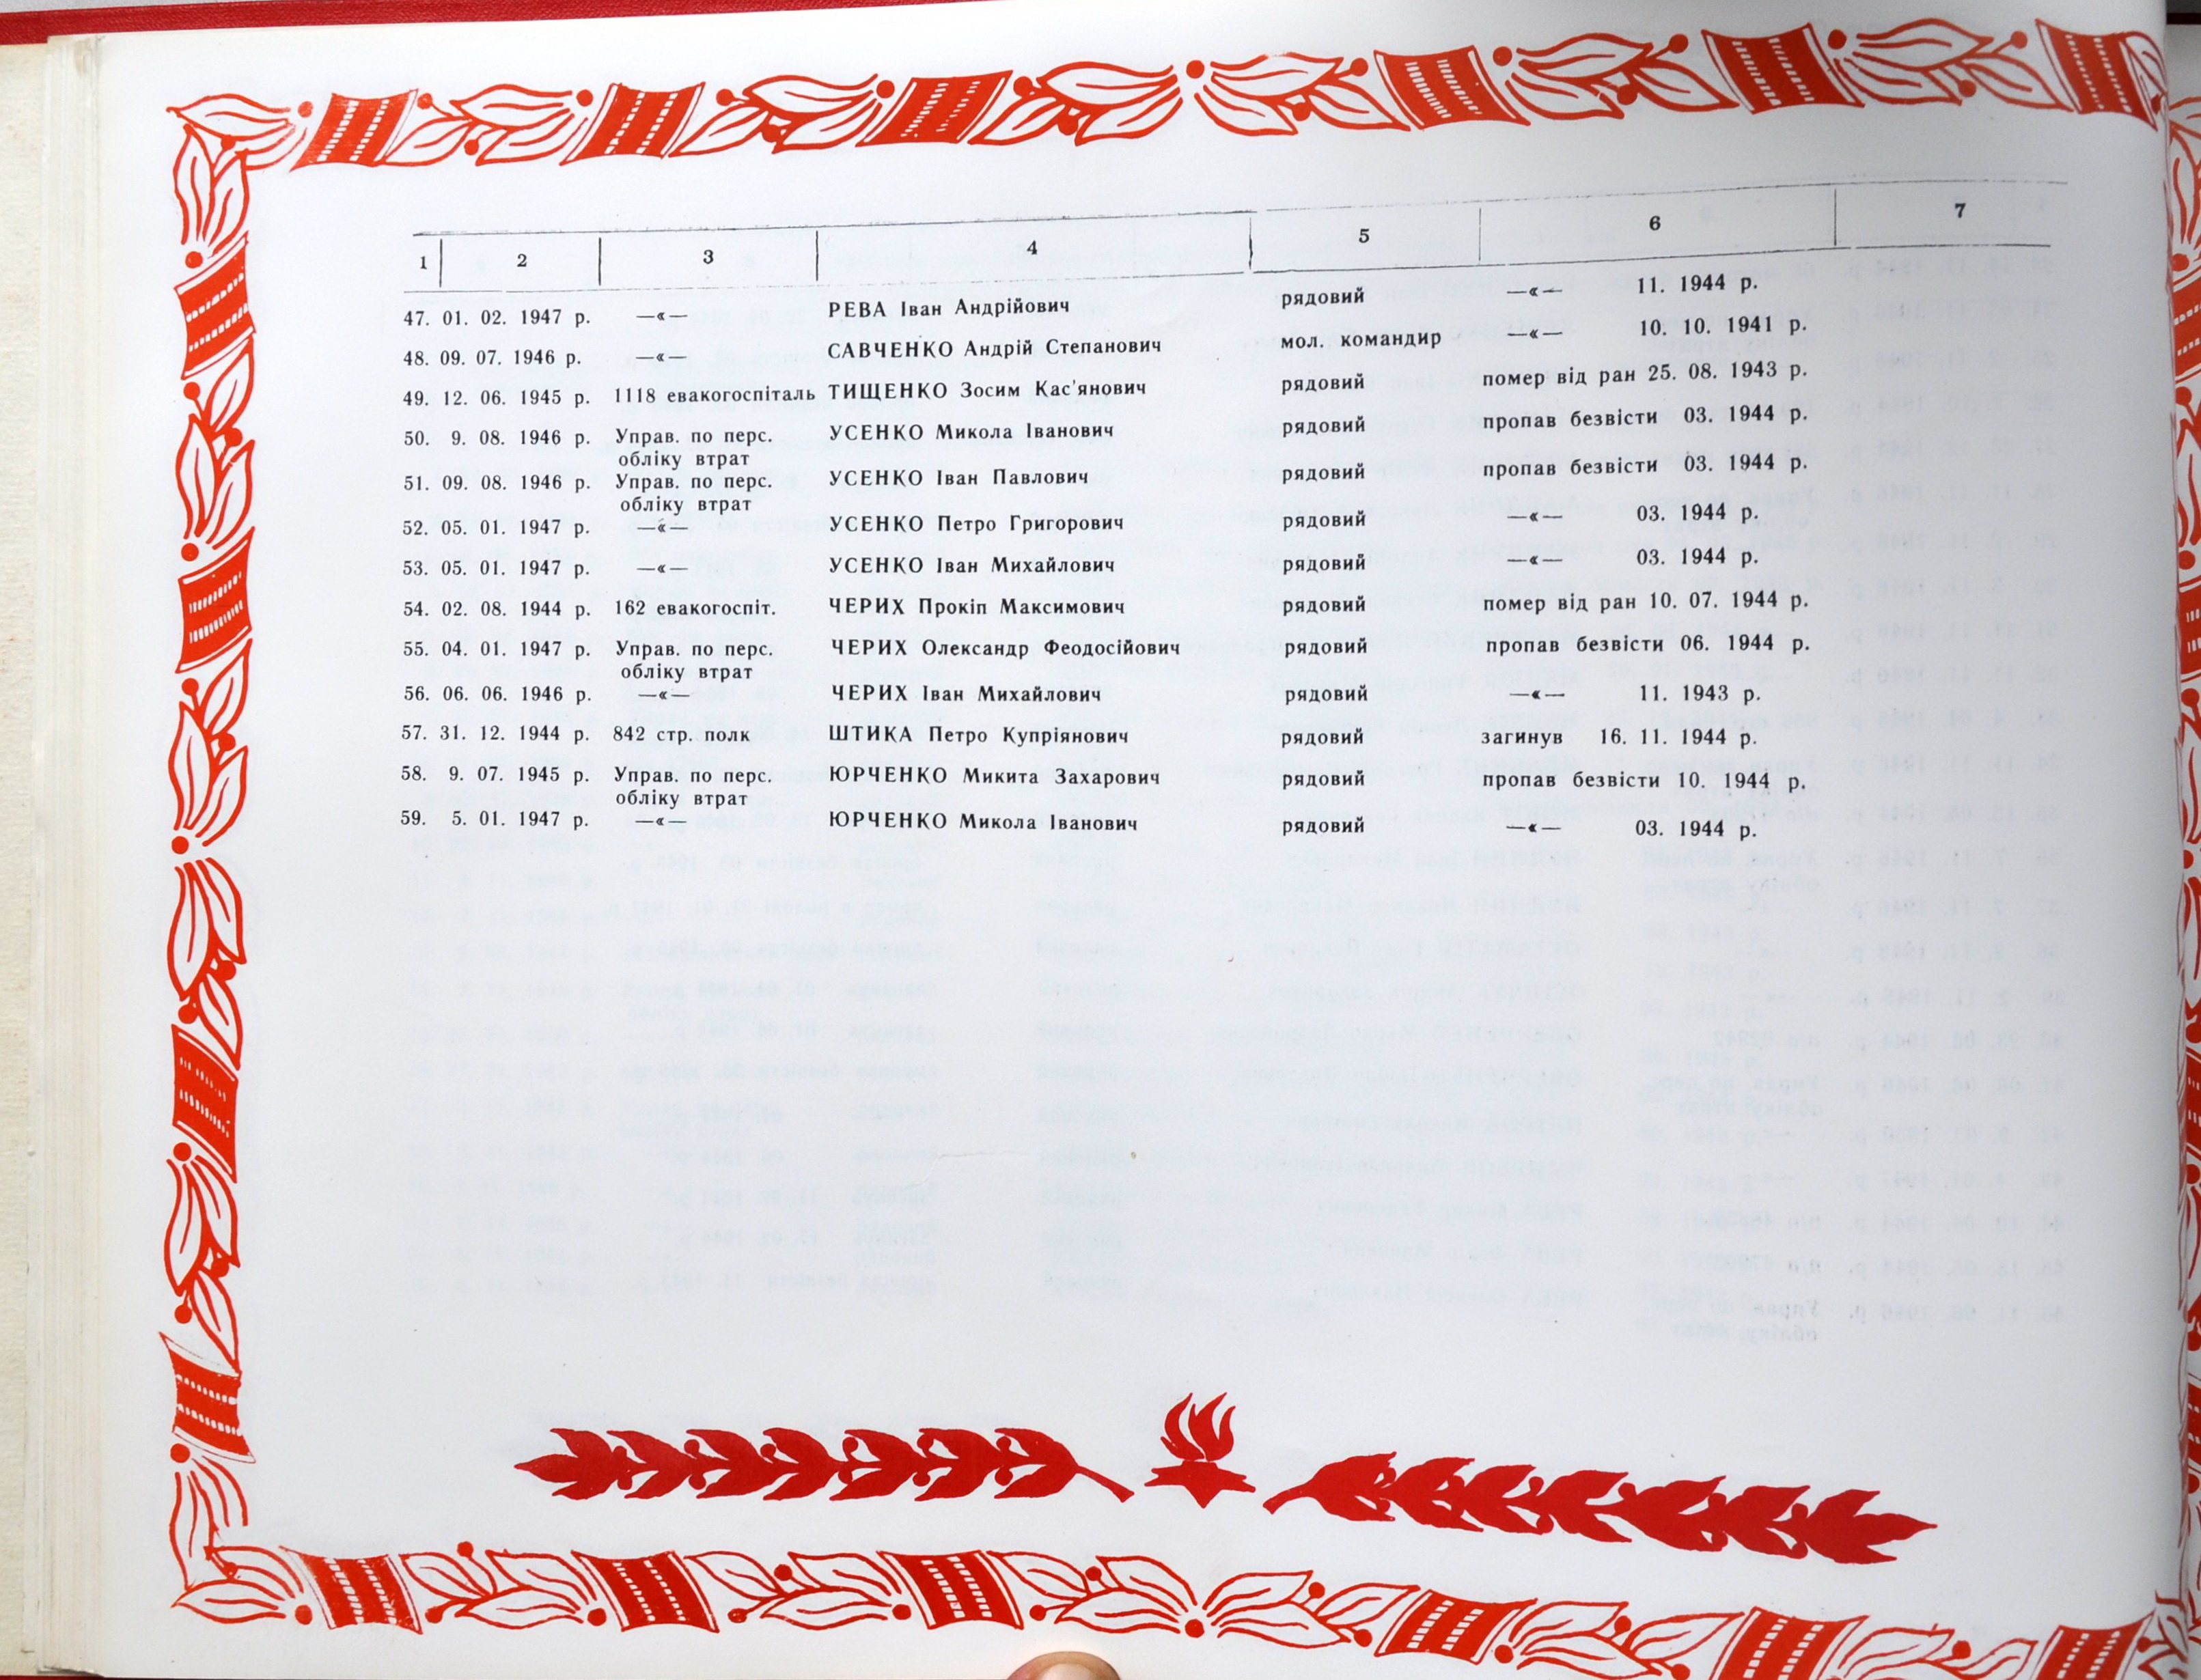 1 2 3 4 5 6 7
47. 01. 02. 1947 р. —«— РЕВА Іван Андрійович рядовий —«— 11. 1944 р.
48. 09. 07. 1946 р. —«— САВЧЕНКО Андрій Степанович мол. командир —«— 10. 10. 1941 р.
49. 12. 06. 1945 р. 1118 евакогоспіталь ТИЩЕНКО Зосим Кас'янович рядовий помер від ран 25. 08. 1943 р.
50. 9. 08. 1946 р. Управ. по перс. УСЕНКО Микола Іванович рядовий пропав безвісти 03. 1944 р.
обліку втрат
51. 09. 08. 1946 р. Управ. по перс. УСЕНКО Іван Павлович рядовий пропав безвісти 03. 1944 р.
обліку втрат
52. 05. 01. 1947 р. —«— УСЕНКО Петро Григорович рядовий —«— 03. 1944 р.
53. 05. 01. 1947 р. —«— УСЕНКО Іван Михайлович рядовий —«— 03. 1944 р.
54. 02. 08. 1944 р. 162 евакогоспіт. ЧЕРИХ Прокіп Максимович рядовий помер від ран 10. 07. 1944 р.
55. 04. 01. 1947 р. Управ. по перс. ЧЕРИХ Олександр Феодосійович рядовий пропав безвісти 06. 1944 р.
обліку втрат
56. 06. 06. 1946 р. —«— ЧЕРИХ Іван Михайлович рядовий —«— 11. 1943 р.
57. 31. 12. 1944 р. 842 стр. полк ШТИКА Петро Купріянович рядовий загинув 16. 11. 1944 р.
58. 9. 07. 1945 р. Управ. по перс. ЮРЧЕНКО Микита Захарович рядовий пропав безвісти 10. 1944 р.
обліку втрат
59. 5. 01. 1947 р. —«— ЮРЧЕНКО Микола Іванович рядовий —«— 03. 1944 р.